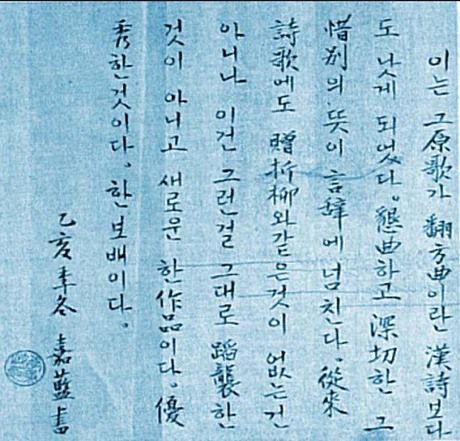 이는 그 原歌가 翻方曲이란 漢詩보다
도 낫게 되었다。懇曲하고 深切한 그
惜別의 뜻이 言辭에 넘친다。從來
詩歌에도 贈折柳와 같은 것이 없는 건
아니나 이건 그런걸 그대로 蹈襲한
것이 아니고 새로운 한 作品이다。優
秀한 것이다。한 보배이다。
乙亥季冬 嘉藍書